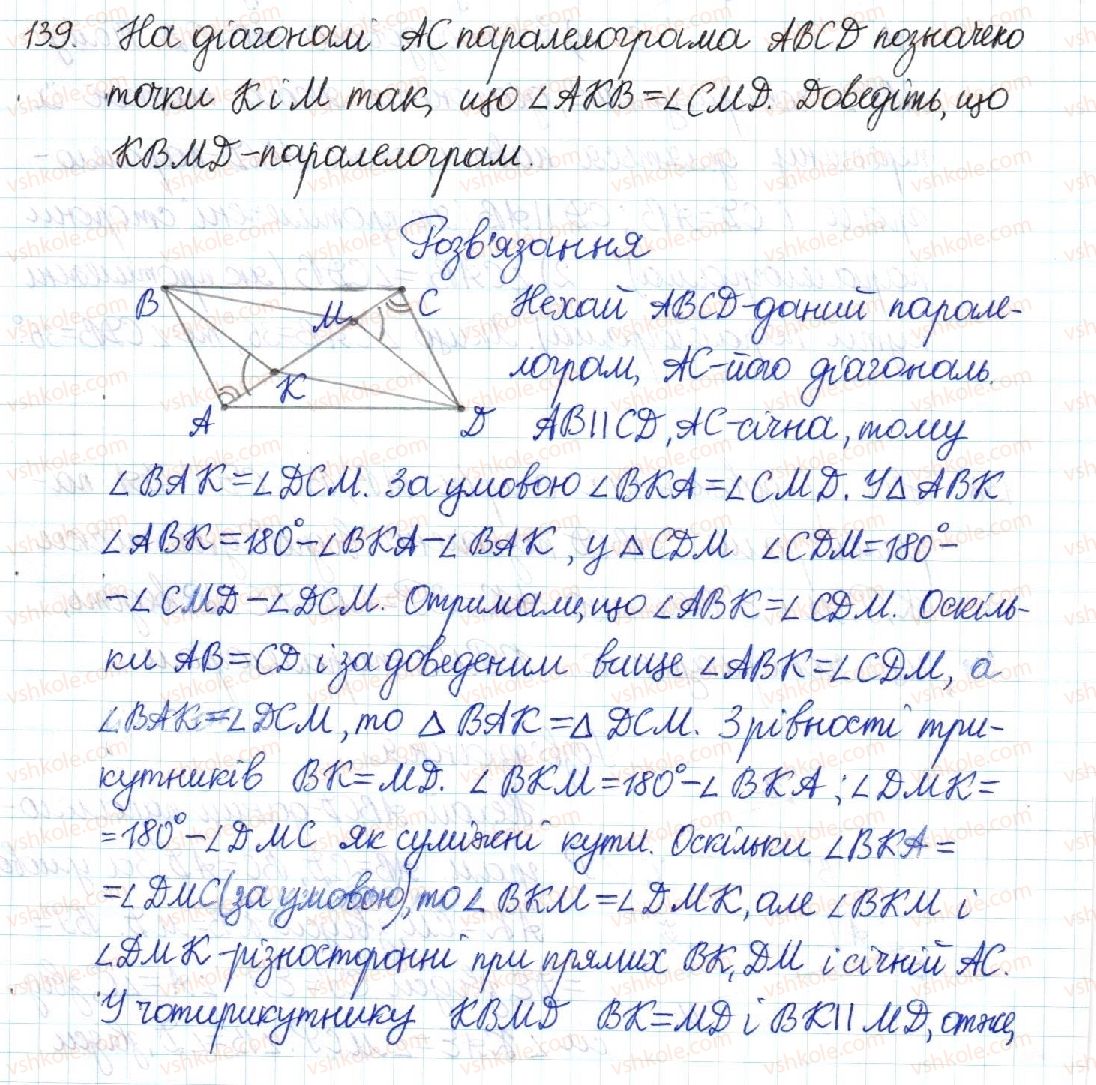 139. На діагоналі AC паралелограма ABCD позначено
точки K і M так, що ∠AKB = ∠CMD. Доведіть, що
KBMD - паралелограм.
Розв'язання
B M C
K
A D
Нехай ABCD - даний парале-
лограм, AC - його діагональ.
AB || CD, AC - січна, тому
∠BAK = ∠DCM. За умовою ∠BKA = ∠CMD. У △ ABK
∠ABK = 180° - ∠BKA - ∠BAK, у △ CDM ∠CDM = 180° -
- ∠CMD - ∠DCM. Отримали, що ∠ABK = ∠CDM. Оскіль-
ки AB = CD і за доведеним вище ∠ABK = ∠CDM, а
∠BAK = ∠DCM, то △ BAK = △ DCM. З рівності три-
кутників BK = MD. ∠BKM = 180° - ∠BKA; ∠DMK =
= 180° - ∠DMC як суміжні кути. Оскільки ∠BKA =
= ∠DMC (за умовою), то ∠BKM = ∠DMK, але ∠BKM і
∠DMK - різносторонні при прямих BK, DM і січній AC.
У чотирикутнику KBMD BK = MD і BK || MD, отже,